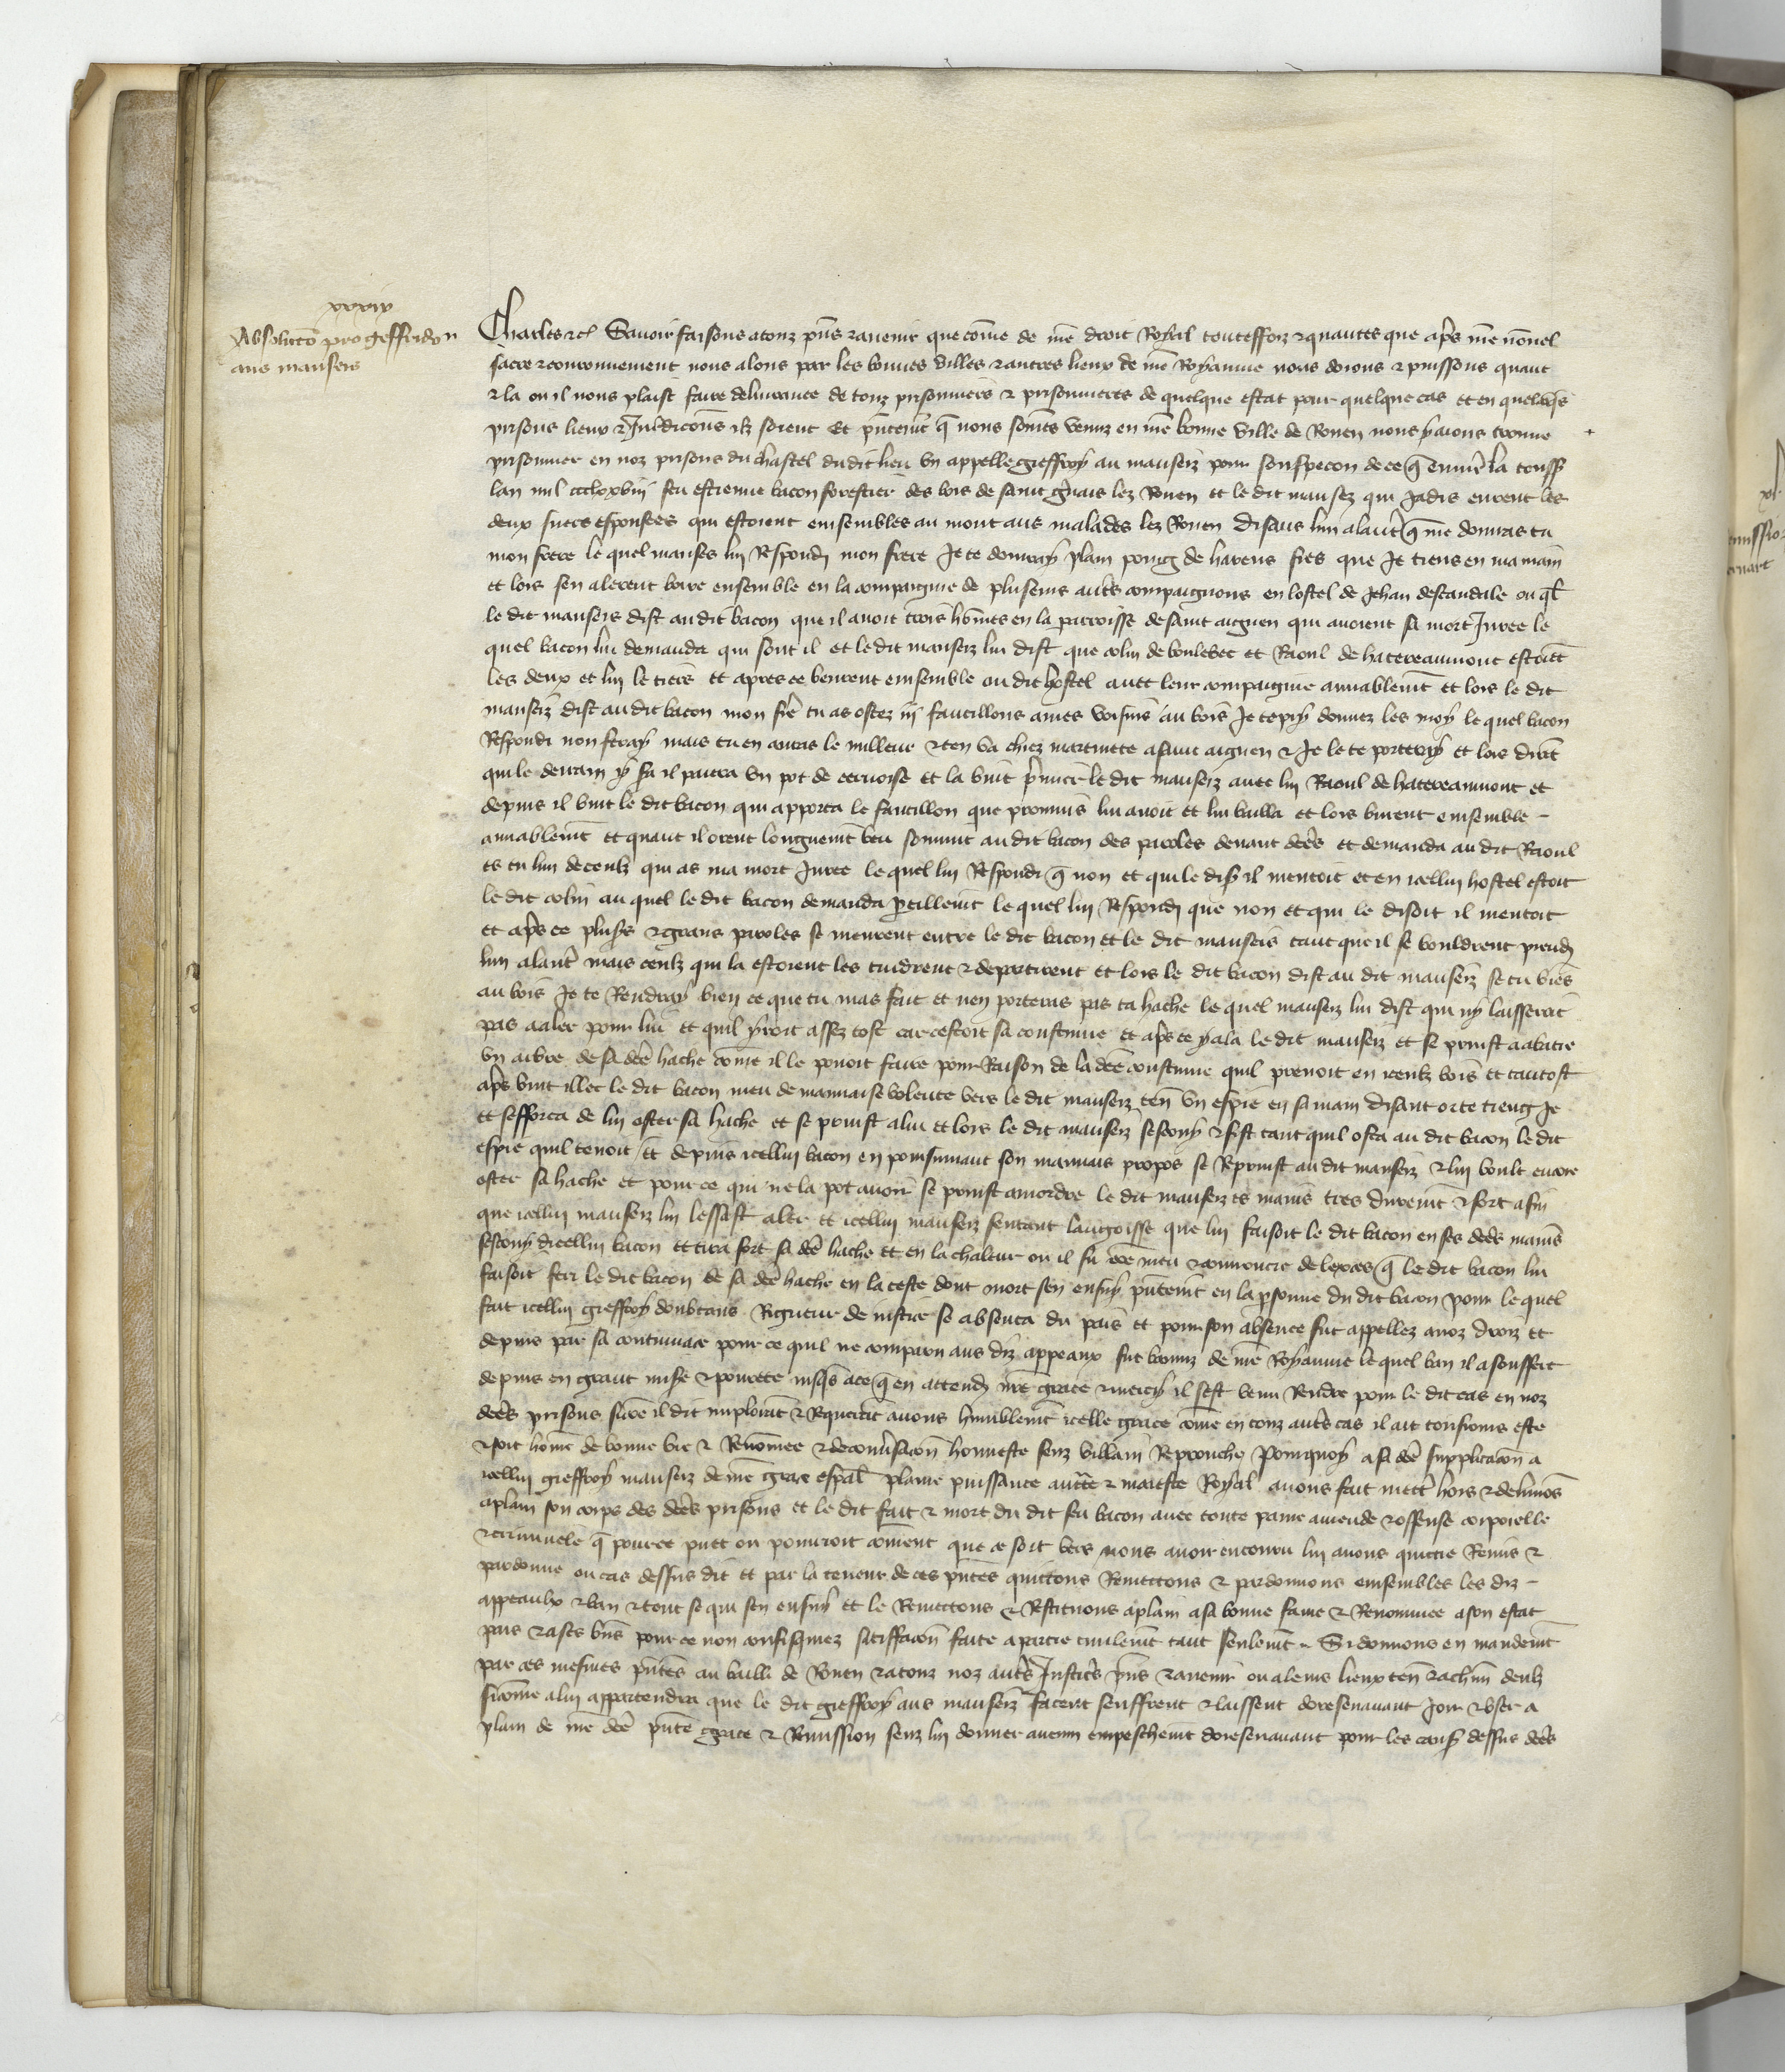 xxxix
Absolucõ pro geffrido
aus manseis
Charles ⁊c̃ Savoir faisons a touz pñs ⁊ avenir que cõme de nr̃e droit Royal toutesfoiz ⁊ quantes que apr̃s nr̃e nouvel
sacre ⁊ couronnement nous alons par les bonnes villes ⁊ autres lieux de nr̃e Royaume nous doions ⁊ puissons quant
⁊ la ou il nous plaist faire delivrance de touz prisonniers ⁊ prisonnieres de quelque estat pour quelque cas et en quelxq̃s
prisons lieux ⁊ Juridicõns ilz soient Et p̃ntem̃t q̃ nous som̃es venuz en nr̃e bonne ville de Rouen nous y aions trouve
prisonnier en noz prisons du chastel dudit lieu un appelle gieffroy au manseiz pour souspecon de ce q̃ environ la touss̃
lan mil ccclxxviii feu estienne bacon forestier des bois de saint g̃vais lez Rouen et le dit mansez qui Jadis eurent les
deux suers espousees qui estoient emsembles au mont aus malades lez Rouen disans lun a lautr̃ q̃ me donrras tu
mon frere le quel manses lui Respondi mon frere Je te donray plain poing de harens fres que Je tiens en ma main
et lors sen alerent boire ensemble en la compaignie de plusieurs autr̃s compaignons en lostel de Jehan descandale ou q̃l
le dit manseis dist au dit bacon que il avoit trois hõmes en la parroisse de saint aignen qui avoient sa mort Juree le
quel bacon lui demanda qui sont il et le dit manseiz lui dist que colin de boulebec et Raoul de hatereaumont estoiẽt
les deux et lui le tiers et apres ce beurent emsemble ou dit hostel avec leur compaignie amiablem̃t et lors le dit
manseiz dist au dit bacon mon fr̃e tu as ostez iij faucillons a mes voisins au bois Je te pry donnez les moy le quel bacon
Respondi non feray mais tu en auras le milleur ⁊ ten va chiez martinete a saint aignen ⁊ Je le te porteray et lors dirẽt
qui le derrain y sera il paiera un pot de cervoise et la vint premier le dit manseiz avec lui Raoul de hatereaumont et
depuis il vint le dit bacon qui apporta le faucillon que promis lui avoit et lui bailla et lors burent emsemble
amiablem̃t et quant il orent longuem̃t beu souvint au dit bacon des paroles devant dc̃es et demanda au dit Raoul
es tu lun de ceulz qui as ma mort Juree le quel lui Respondi q̃ non et qui le dis̃ il mentoit et en icellui hostel estoit
le dit colin au quel le dit bacon demanda p̃eillem̃t le quel lui Respondi que non et qui le disoit il mentoit
et apr̃s ce plus̃rs ⁊ grans paroles se meurent entre le dit bacon et le dit manseis tant que il se vouldrent prendr̃
lun a lautr̃ mais ceulz qui la estoient les tindrent ⁊ departirent et lors le dit bacon dist au dit manseiz se tu viẽs
au bois Je te Rendray bien ce que tu mas fait et nen porteras pas ta hache le quel manseiz lui dist qui ny laisseroit
pas a aler pour lui et quil yroit assez tost car cestoit sa coustume et apr̃s ce y ala le dit manseiz et se prinst a abatre
un arbre de sa dc̃e hache cõme il le pouoit faire pour Raison de la dc̃e coustume quil prenoit en iceulz bois et tantost
apr̃s vint illec le dit bacon meu de mauvaise volente vers le dit manseiz teñ un espie en sa main disant or te tieng Je
et sefforca de lui oster sa hache et se prinst a lui et lors le dit manseiz sescouy ⁊ fist tant quil osta au dit bacon le dit
espie quil tenoit et depuis icellui bacon en poursuivant son mauvais propos se Reprinst au dit manseiz ⁊ lui voult encore
oster sa hache et pour ce qui ne la pot avoir se prinst a mordre le dit manseiz es mains tres durem̃t ⁊ fort afin
que icellui manseiz lui lessast aler et icellui manseiz sentant langoisse que lui faisoit le dit bacon en ses dc̃es mains
sescouy dicellui bacon et tira fort sa dc̃e hache et en la chaleur ou il fu co͂e meu ⁊ commencie de lexces q̃ le dit bacon lui
faisoit feri le dit bacon de sa dc̃e hache en la teste dont mort sen ensuy p̃ntem̃t en la p̃sonne du dit bacon pour le quel
fait icellui gieffroy doubtans Rigueur de justice se absenta du pais et pour son absence fut appellez a noz droiz et
depuis par sa contumace pour ce quil ne comparu aus diz appeaux fut banniz de nr̃e Royaume le quel ban il a souffert
depuis en grant mis̃e ⁊ povrete jusq̃s a ce q̃ en attend̃ nr̃e grace ⁊ mercy il sest venu Rendre pour le dit cas en noz
dc̃es prisons si cõe il dit implorãt ⁊ Requerãt avons humblem̃t icelle grace cõme en touz autr̃s cas il ait tousjours este
⁊ soit hom̃e de bonne vie ⁊ Renom̃ee ⁊ de convs̃acõn honneste senz villain Reprouche Pourquoy a sa dc̃e supplicacõn a
icellui gieffroy manseiz de nr̃e grace esp̃al plaine puissance auct̃te ⁊ maieste Royal avons fait mettr̃ hors ⁊ delivrõs
a plain son corps des dc̃es prisons et le dit fait ⁊ mort du dit feu bacon avec toute paine amende ⁊ offense corporelle
⁊ criminele q̃ pour ce puet ou pourroit com̃ent que ce soit vers nous avoir encouru lui avons quictie Remis ⁊
pardonne ou cas dessus dit et par la teneur de ces p̃ntes quictons Remectons ⁊ pardonnons emsembles les diz
appeaulx ⁊ ban ⁊ tout se qui sen ensuy et le Remectons ⁊ Restituons a plain a sa bonne fame ⁊ Renommee a son estat
pais ⁊ a ses b̃ns pour ce non confisquez satisfacõn faite a partie civilem̃t tant seulem̃t Si donnons en mandem̃t
par ces mesmes p̃ntes au bailli de Rouen ⁊ a touz noz autr̃s Justiciers p̃ns ⁊ avenir ou a leurs lieux teñ ⁊ a chũn deulz
si cõme a lui appartendra que le dit gieffroy aus manseiz facent seuffrent ⁊ laissent doresenavant Joir ⁊ user a
plain de nr̃e dc̃e p̃nte grace ⁊ Remission senz lui donner aucun empeschem̃t doresenavant pour les caus̃ dessus dc̃es